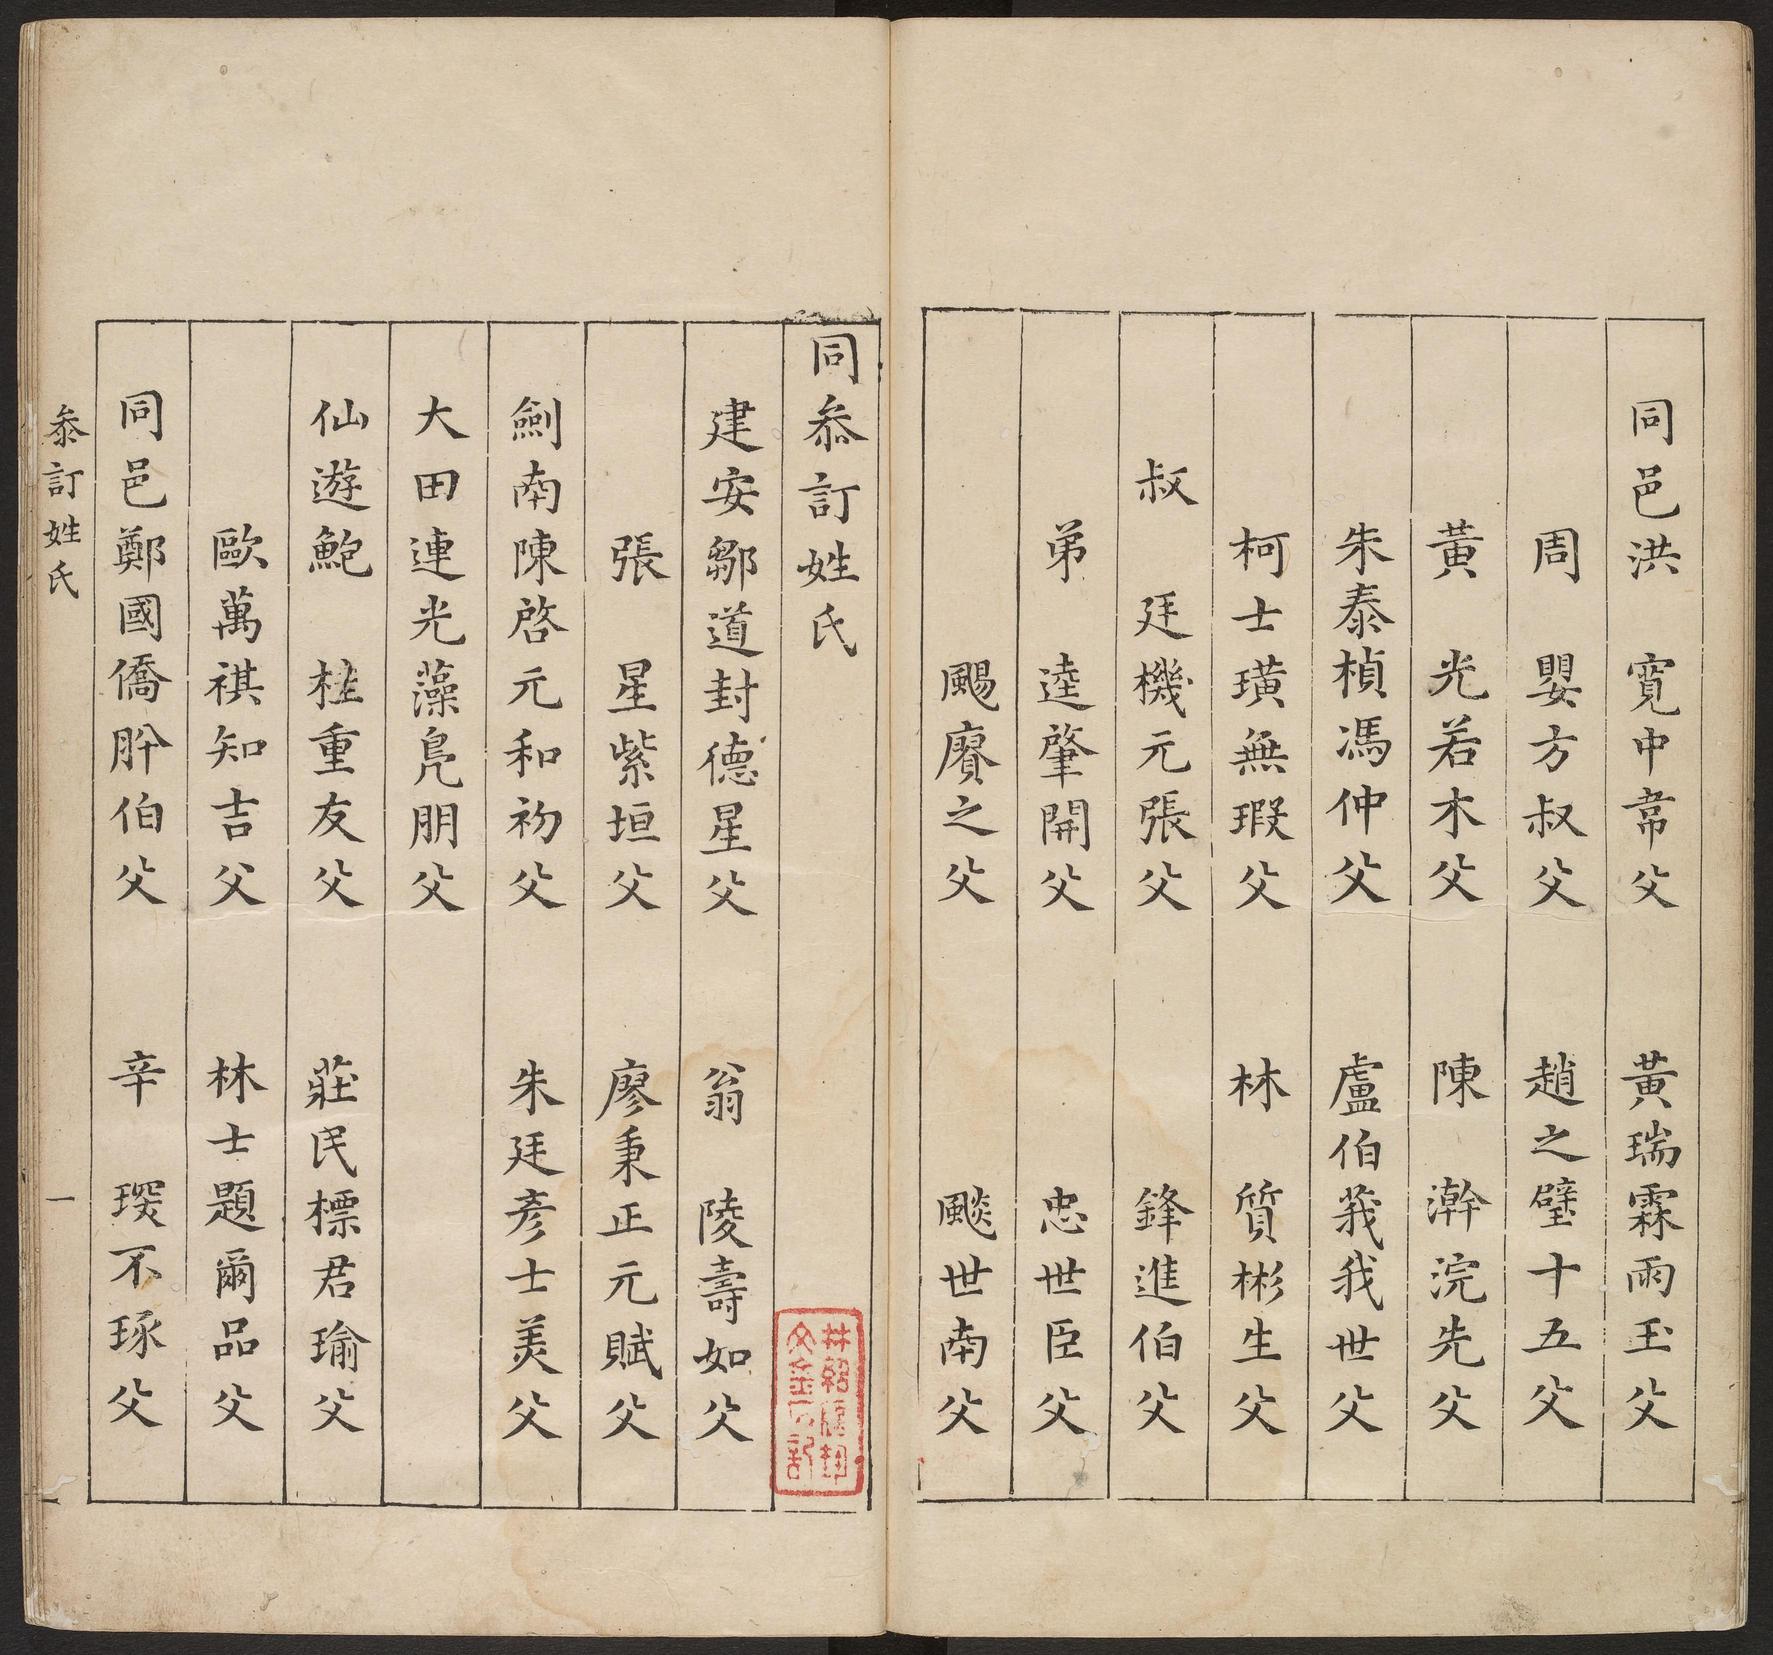 同邑洪　寬中韋父　黃瑞霖雨玉父
周　嬰方叔父　趙之璧十五父
黃　光若木父　陳　澣浣先父
朱泰楨馮仲父　盧伯莪我世父
柯士璜無瑕父　林　質彬生父
叔　廷機元張父　鋒進伯父
弟　逵肇開父　忠世臣父
颺賡之父　颷世南父
同叅訂姓氏
建安鄒道封德星父　翁　陵壽如父
張　星紫垣父　廖秉正元賦父
劍南陳啓元和初父　朱廷彥士美父
大田連光藻鳧朋父
仙遊鮑　桂重友父　莊民標君瑜父
歐萬祺知吉父　林士題爾品父
同邑鄭國僑肸伯父　辛　琰不琢父
叅訂姓氏　一